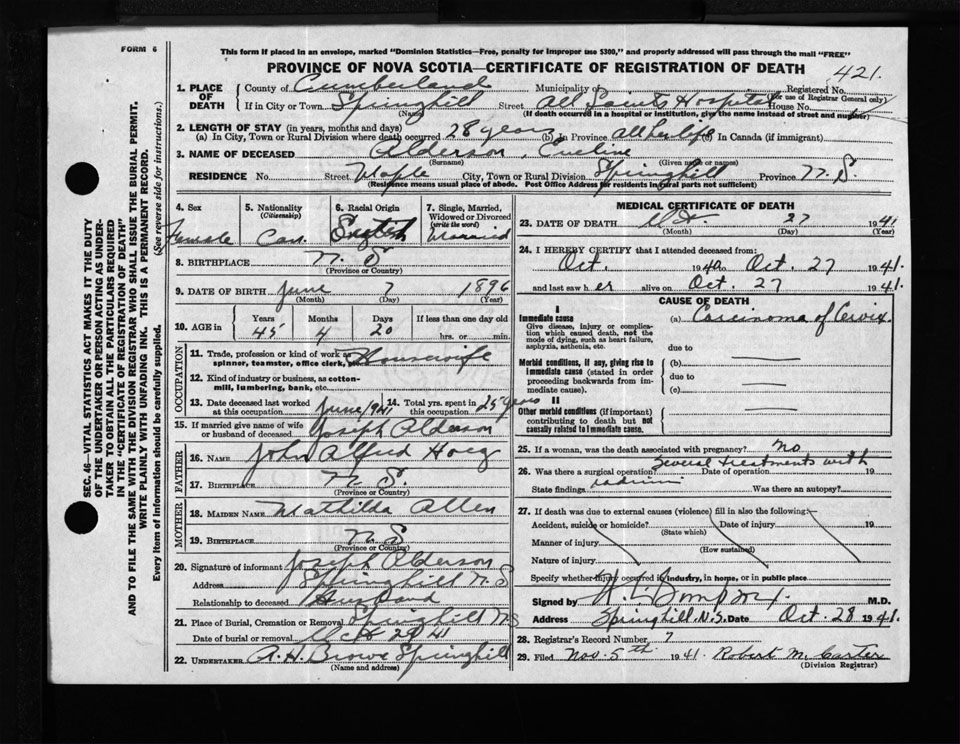 FORM 6
This form if placed in an envelope, marked "Dominion Statistics—Free, penalty for improper use $300," and properly addressed will pass through the mail "FREE"
PROVINCE OF NOVA SCOTIA—CERTIFICATE OF REGISTRATION OF DEATH
421.
1. PLACE OF DEATH
County of Cumberland Municipality of Registered No.
(For use of Registrar General only)
If in City or Town Springhill Street All Saints Hospital House No.
(Name) (If death occurred in a hospital or institution, give the name instead of street and number)
2. LENGTH OF STAY (in years, months and days)
(a) In City, Town or Rural Division where death occurred 28 years (b) In Province all her life (c) In Canada (if immigrant)
3. NAME OF DECEASED Alderson, Eveline
(Surname) (Given name or names)
RESIDENCE No. Street Maple City, Town or Rural Division Springhill Province N. S.
(Residence means usual place of abode. Post Office Address for residents in rural parts not sufficient)
4. Sex
Female
5. Nationality
(Citizenship)
Can.
6. Racial Origin
English
7. Single, Married, Widowed or Divorced
(write the word)
Married
8. BIRTHPLACE N. S
(Province or Country)
9. DATE OF BIRTH June 7 1896
(Month) (Day) (Year)
10. AGE in
Years Months Days If less than one day old
45 4 20 hrs. or min.
OCCUPATION
11. Trade, profession or kind of work as spinner, teamster, office clerk, Housewife
12. Kind of industry or business, as cotton-mill, lumbering, bank, etc.
13. Date deceased last worked at this occupation June 1941
14. Total yrs. spent in this occupation 25 years
15. If married give name of wife or husband of deceased Joseph Alderson
FATHER
16. NAME John Alfred Hoeg
17. BIRTHPLACE N. S.
(Province or Country)
MOTHER
18. MAIDEN NAME Mathilda Allen
19. BIRTHPLACE N. S
(Province or Country)
20. Signature of informant Joseph Alderson
Address Springhill N. S
Relationship to deceased Husband
21. Place of Burial, Cremation or Removal Springhill NS
Date of burial or removal Oct 29 41
22. UNDERTAKER A. H. Brown Springhill
(Name and address)
MEDICAL CERTIFICATE OF DEATH
23. DATE OF DEATH Oct. 27 1941
(Month) (Day) (Year)
24. I HEREBY CERTIFY that I attended deceased from:
Oct. 1940 to Oct. 27 1941.
and last saw her alive on Oct. 27 1941.
CAUSE OF DEATH
I
Immediate cause
Give disease, injury or complication which caused death, not the mode of dying, such as heart failure, asphyxia, asthenia, etc.
(a) Carcinoma of Cervix.
due to
Morbid conditions, if any, giving rise to immediate cause (stated in order proceeding backwards from immediate cause).
(b)
due to
(c)
II
Other morbid conditions (if important) contributing to death but not causally related to immediate cause.
25. If a woman, was the death associated with pregnancy? No
Several treatments with
26. Was there a surgical operation? Date of operation 19
State findings radium Was there an autopsy?
27. If death was due to external causes (violence) fill in also the following:—
Accident, suicide or homicide? Date of injury 19
(State which)
Manner of injury
(How sustained)
Nature of injury
Specify whether injury occurred in industry, in home, or in public place
Signed by M.D.
Address Springhill, N.S. Date Oct. 28 1941.
28. Registrar's Record Number 7
29. Filed Nov. 5th 1941. Robert M. Carter
(Division Registrar)
SEC. 46—VITAL STATISTICS ACT MAKES IT THE DUTY
OF THE UNDERTAKER OR PERSON ACTING AS UNDER-
TAKER TO OBTAIN ALL THE PARTICULARS REQUIRED
IN THE "CERTIFICATE OF REGISTRATION OF DEATH"
AND TO FILE THE SAME WITH THE DIVISION REGISTRAR WHO SHALL ISSUE THE BURIAL PERMIT.
WRITE PLAINLY WITH UNFADING INK. THIS IS A PERMANENT RECORD.
Every item of Information should be carefully supplied. (See reverse side for instructions.)